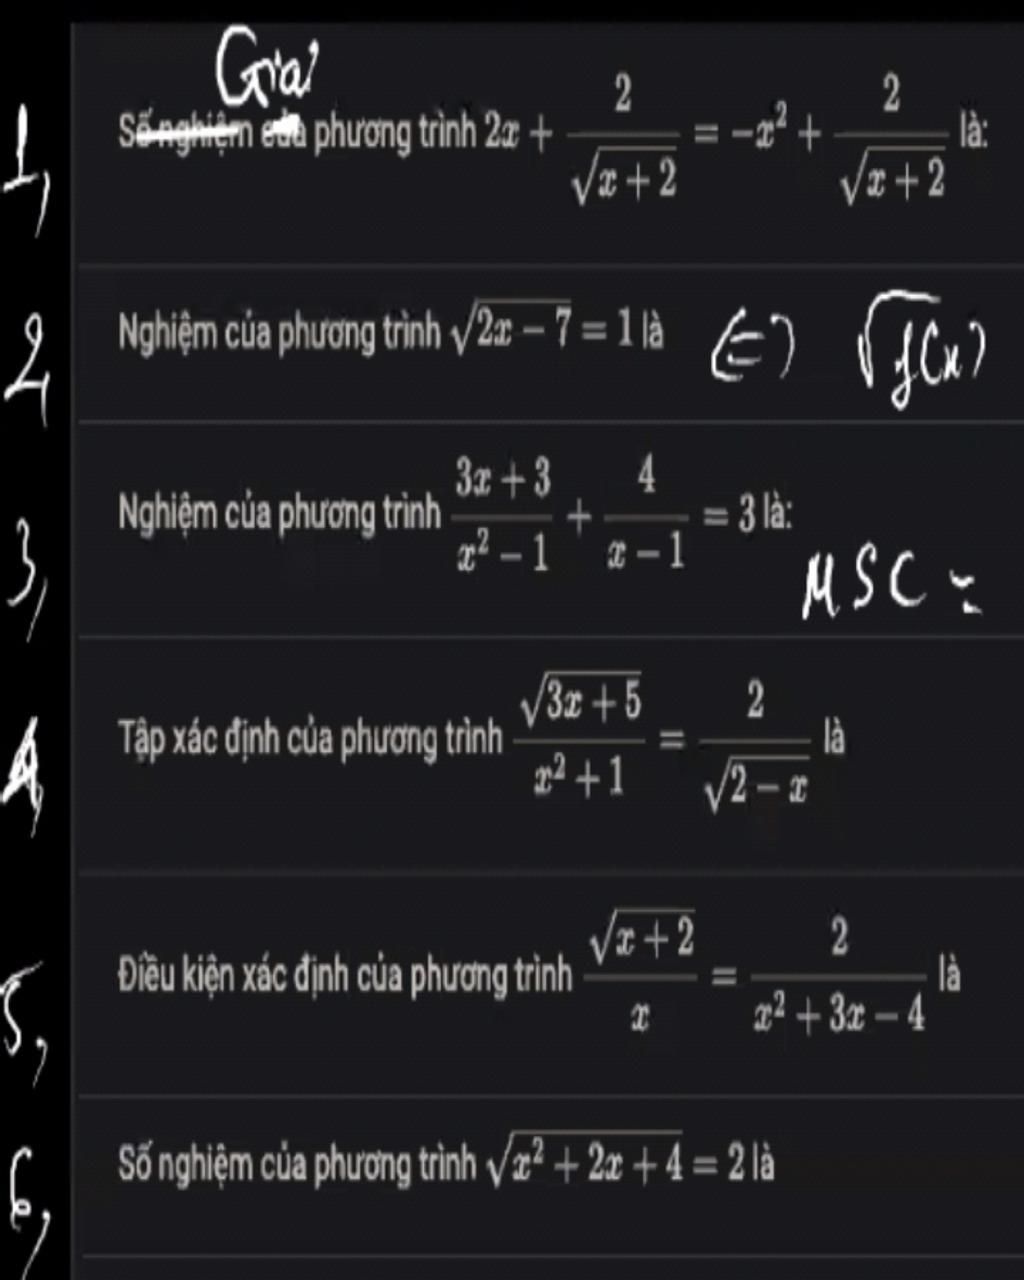 Giải
1, Số nghiệm của phương trình 2x + 2/√(x + 2) = −x² + 2/√(x + 2) là:
2, Nghiệm của phương trình √(2x − 7) = 1 là (=) √f(x)
3, Nghiệm của phương trình (3x + 3)/(x² − 1) + 4/(x − 1) = 3 là:
MSC =
4, Tập xác định của phương trình √(3x + 5)/(x² + 1) = 2/√(2 − x) là
5, Điều kiện xác định của phương trình √(x + 2)/x = 2/(x² + 3x − 4) là
6, Số nghiệm của phương trình √(x² + 2x + 4) = 2 là